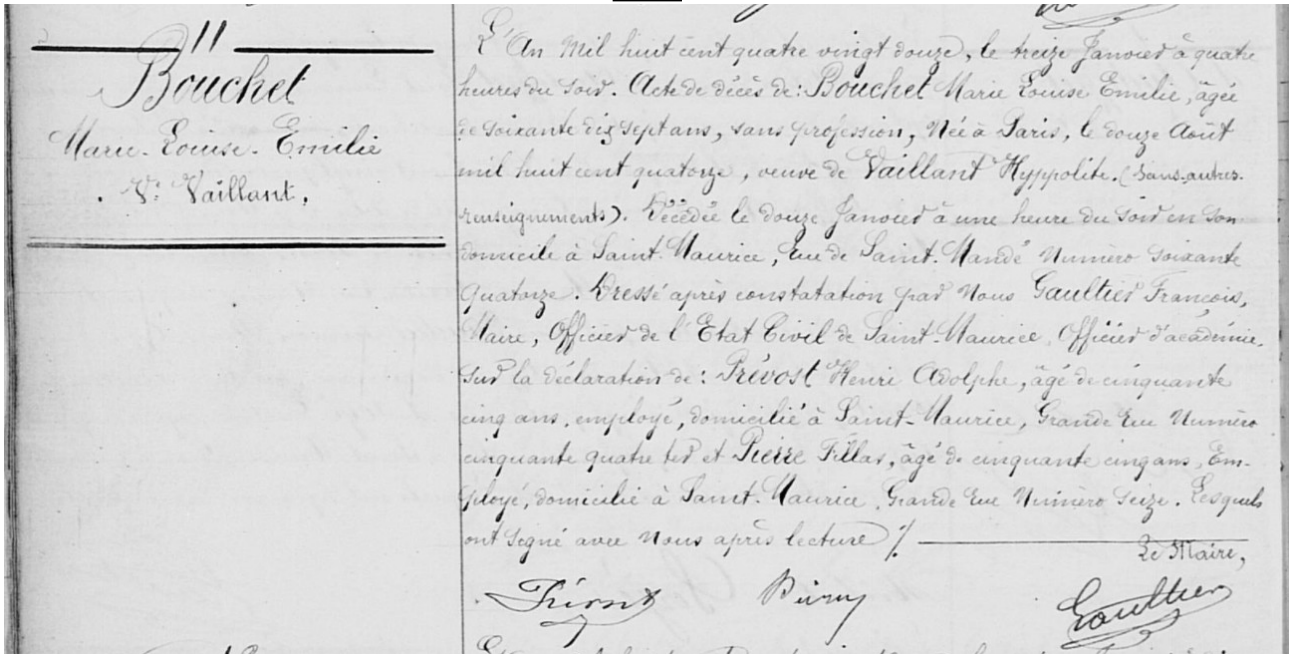 11
Bouchet
Marie-Louise-Emilie
Ve Vaillant,
L'An mil huit cent quatre vingt douze, le treize Janvier à quatre
heures du soir. Acte de décès de: Bouchet Marie Louise Emilie, âgée
de soixante dix sept ans, sans profession, Née à Paris, le douze Août
mil huit cent quatorze, veuve de Vaillant Hyppolite. (sans autres
renseignements). Décédée le douze Janvier à une heure du soir en son
domicile à Saint-Maurice, Rue de Saint-Mandé Numéro soixante
quatorze. Dressé après constatation par Nous Gaultier François,
Maire, Officier de l'Etat Civil de Saint-Maurice, Officier d'académie,
sur la déclaration de: Prévost Henri Adolphe, âgé de cinquante
cinq ans, employé, domicilié à Saint-Maurice, Grande Rue Numéro
cinquante quatre ter et Pierre Fillar, âgé de cinquante cinq ans, Em-
ployé, domicilié à Saint-Maurice, Grande Rue Numéro seize. Lesquels
ont signé avec Nous après lecture ./.
Le Maire,
Prévost Pierre Gaultier